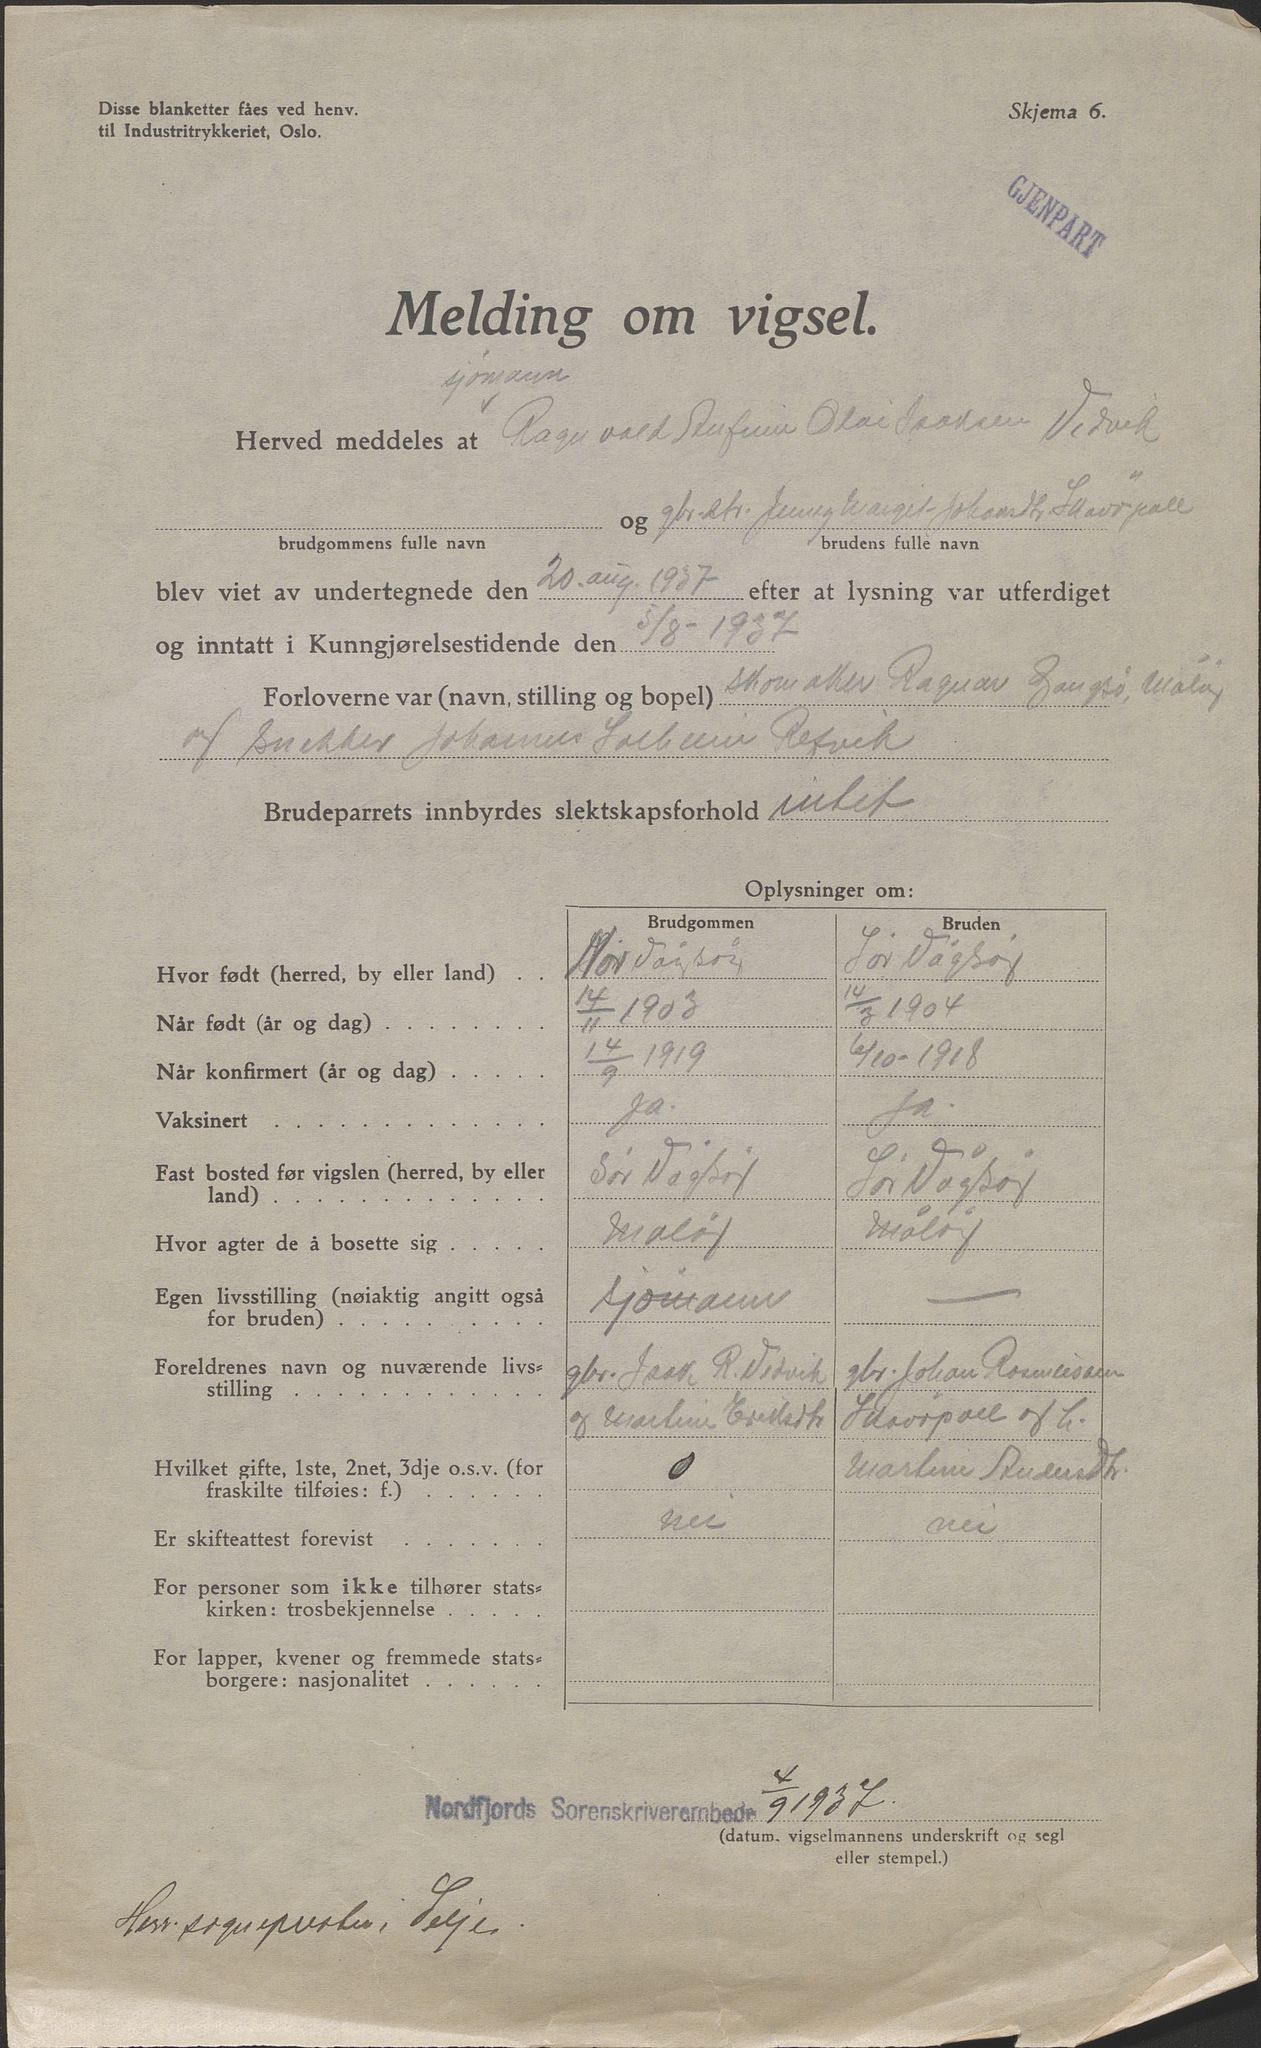 Disse blanketter fåes ved henv.
til Industritrykkeriet, Oslo.
Skjema 6.
GJENPART
Melding om vigsel.
sjömann
Herved meddeles at Ragnvald Olai Isaksen Vedvik
og gbr.dtr. Jenny Margit Johansdtr. Skavöpoll
brudgommens fulle navn brudens fulle navn
blev viet av undertegnede den 20. aug. 1937 efter at lysning var utferdiget
og inntatt i Kunngjørelsestidende den 5/8- 1937
Forloverne var (navn, stilling og bopel) skomaker Ragnar Gangsö, Målöy
og snekker Johannes Solheim Refvik
Brudeparrets innbyrdes slektskapsforhold intet
Oplysninger om:
Brudgommen Bruden
Hvor født (herred, by eller land) . . Nor Vågsöy Sör Vågsöy
Når født (år og dag) . . . . . . . . 14/11 1903 14/3 1904
Når konfirmert (år og dag) . . . . . 14/9 1919 6/10- 1918
Vaksinert . . . . . . . . . . . . . Ja. Ja.
Fast bosted før vigslen (herred, by eller
land) . . . . . . . . . . . . . Sör Vågsöy Sör Vågsöy
Hvor agter de å bosette sig . . . . . Målöy Målöy
Egen livsstilling (nøiaktig angitt også
for bruden) . . . . . . . . . . sjömann —
Foreldrenes navn og nuværende livs-
stilling . . . . . . . . . . . . gbr. Isak R. Vedvik gbr. Johan Rasmussen
og Martine Eriksdtr Skavöpoll og h.
Hvilket gifte, 1ste, 2net, 3dje o.s.v. (for
fraskilte tilføies: f.) . . . . . . 0 Martine Andersdtr.
Er skifteattest forevist . . . . . . . nei nei
For personer som ikke tilhører stats-
kirken: trosbekjennelse . . . . .
For lapper, kvener og fremmede stats-
borgere: nasjonalitet . . . . . .
Nordfjords Sorenskriverembede 4/9 1937.
(datum. vigselmannens underskrift og segl
eller stempel.)
Herr sognepresten i Selje.